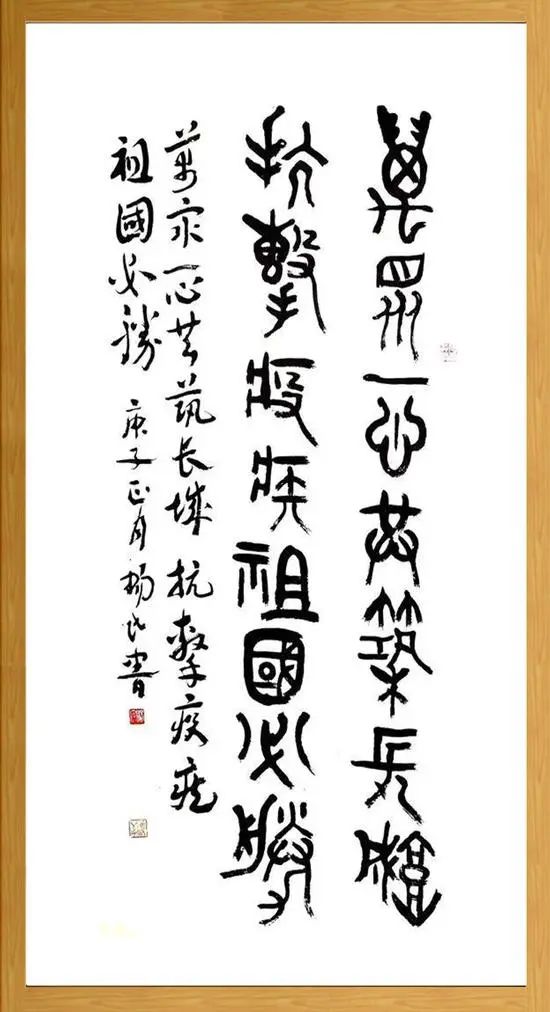 萬眾一心共築長城
抗擊疫疾祖國必勝
萬众一心共筑长城 抗擊疫疾
祖國必勝 庚子正月楊書